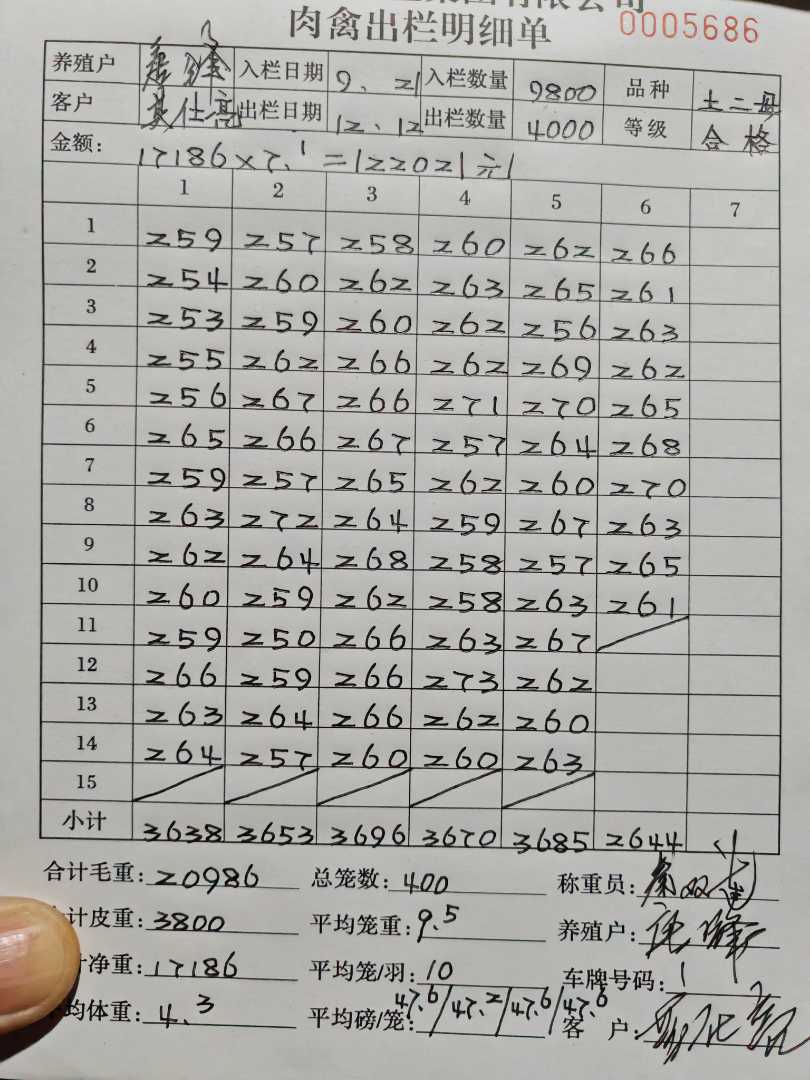 集团有限公司
肉禽出栏明细单 0005686
养殖户 入栏日期 9、21 入栏数量 9800 品种 土二号
客户 出栏日期 12、12 出栏数量 4000 等级 合格
金额: 17186×7.1=122021元
1 2 3 4 5 6 7
1 259 257 258 260 262 266
2 254 260 262 263 265 261
3 253 259 260 262 256 263
4 255 262 266 262 269 262
5 256 267 266 271 270 265
6 265 266 267 257 264 268
7 259 257 265 262 260 270
8 263 272 264 259 267 263
9 262 264 268 258 257 265
10 260 259 262 258 263 261
11 259 250 266 263 267
12 266 259 266 273 262
13 263 264 266 262 260
14 264 257 260 260 263
15
小计 3638 3653 3696 3670 3685 2644
合计毛重: 20986 总笼数: 400 称重员:
计皮重: 3800 平均笼重: 9.5 养殖户:
净重: 17186 平均笼/羽: 10 车牌号码: 1
均体重: 4.3 平均磅/笼: 47.6/47.2/47.6/47.6 客 户: